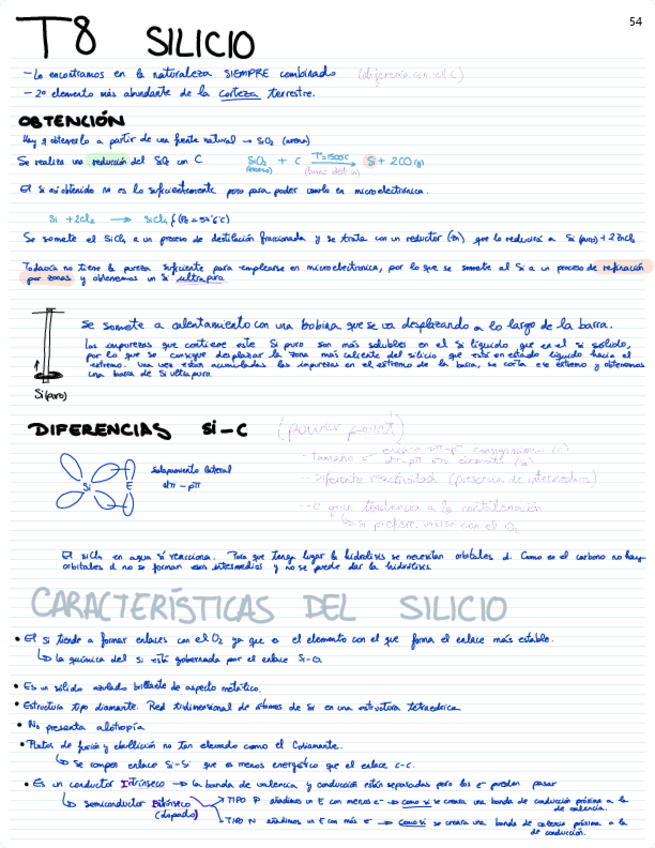 54
T8 SILICIO
- Lo encontramos en la naturaleza SIEMPRE combinado (diferencia con el C)
- 2º elemento más abundante de la corteza terrestre.
OBTENCIÓN
Hay q obtenerlo a partir de una fuente natural → SiO2 (arena)
Se realiza una reducción del SiO2 con C SiO2 + C T=1500C → Si + 2CO(g)
(arena)
El Si así obtenido no es lo suficientemente puro para poder usarlo en microelectrónica.
Si + 2Cl2 → SiCl4
Se somete el SiCl4 a un proceso de destilación fraccionada y se trata con un reductor (Zn) que lo reducirá a Si (puro) + 2ZnCl2
Todavía no tiene la pureza suficiente para emplearse en microelectronica, por lo que se somete al Si a un proceso de refinación
por zonas y obtenemos un Si ultrapuro
Se somete a calentamiento con una bobina que se va desplazando a lo largo de la barra.
Las impurezas que contiene este Si puro son más solubles en el Si líquido que en el Si sólido,
por lo que se consigue desplazar la zona más caliente del silicio que está en estado líquido hacia el
extremo. Una vez están acumuladas las impurezas en el extremo de la barra, se corta ese extremo y obtenemos
una barra de Si ultrapuro.
Si(puro)
DIFERENCIAS Si-C (power point)
- tamaño
Solapamiento lateral
dπ - pπ
Si E
- Diferente reactividad (presencia de intermedios)
- C gran tendencia a la concatenación
↳ Si prefiere unirse con el O2
El SiCl4 en agua sí reacciona. Para que tenga lugar la hidrólisis se necesitan orbitales d. Como en el carbono no hay
orbitales d no se forman esos intermedios y no se puede dar la hidrólisis.
CARACTERÍSTICAS DEL SILICIO
• El Si tiende a formar enlaces con el O2 ya que es el elemento con el que forma el enlace más estable.
↳ la química del Si está gobernada por el enlace Si-O.
• Es un sólido azulado brillante de aspecto metálico.
• Estructura tipo diamante. Red tridimensional de átomos de Si en una estructura tetraedrica
• No presenta alotropía
• Ptos de fusión y ebullición no tan elevado como el Cdiamante.
↳ Se rompen enlace Si-Si que es menos energético que el enlace C-C.
• Es un conductor Intrínseco → la banda de valencia y conducción están separadas pero los e- pueden pasar
↳ semiconductor Extrínseco
(dopado)
TIPO P añadimos un E con menos e- → como si se creara una banda de conducción próxima a la
de valencia.
TIPO N añadimos un E con más e- → como si se creara una banda de valencia próxima a la
de conducción.